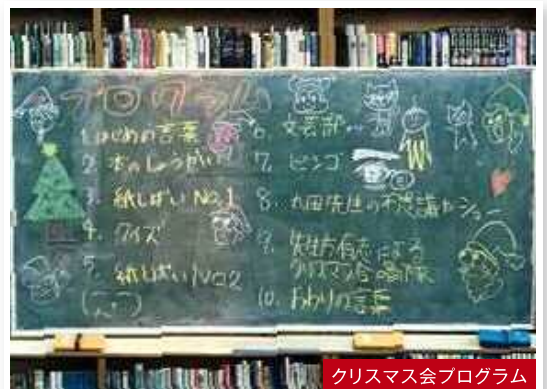 プログラム
1. はじめの言葉
2. 本のしょうかい
3. 紙しばい No.1
4. クイズ
5. 紙しばい No2
6. 文芸部
7. ビンゴ
8. 先生の不思議なショー
9. 先生方有志による
クリスマス会
10. おわりの言葉
クリスマス会プログラム